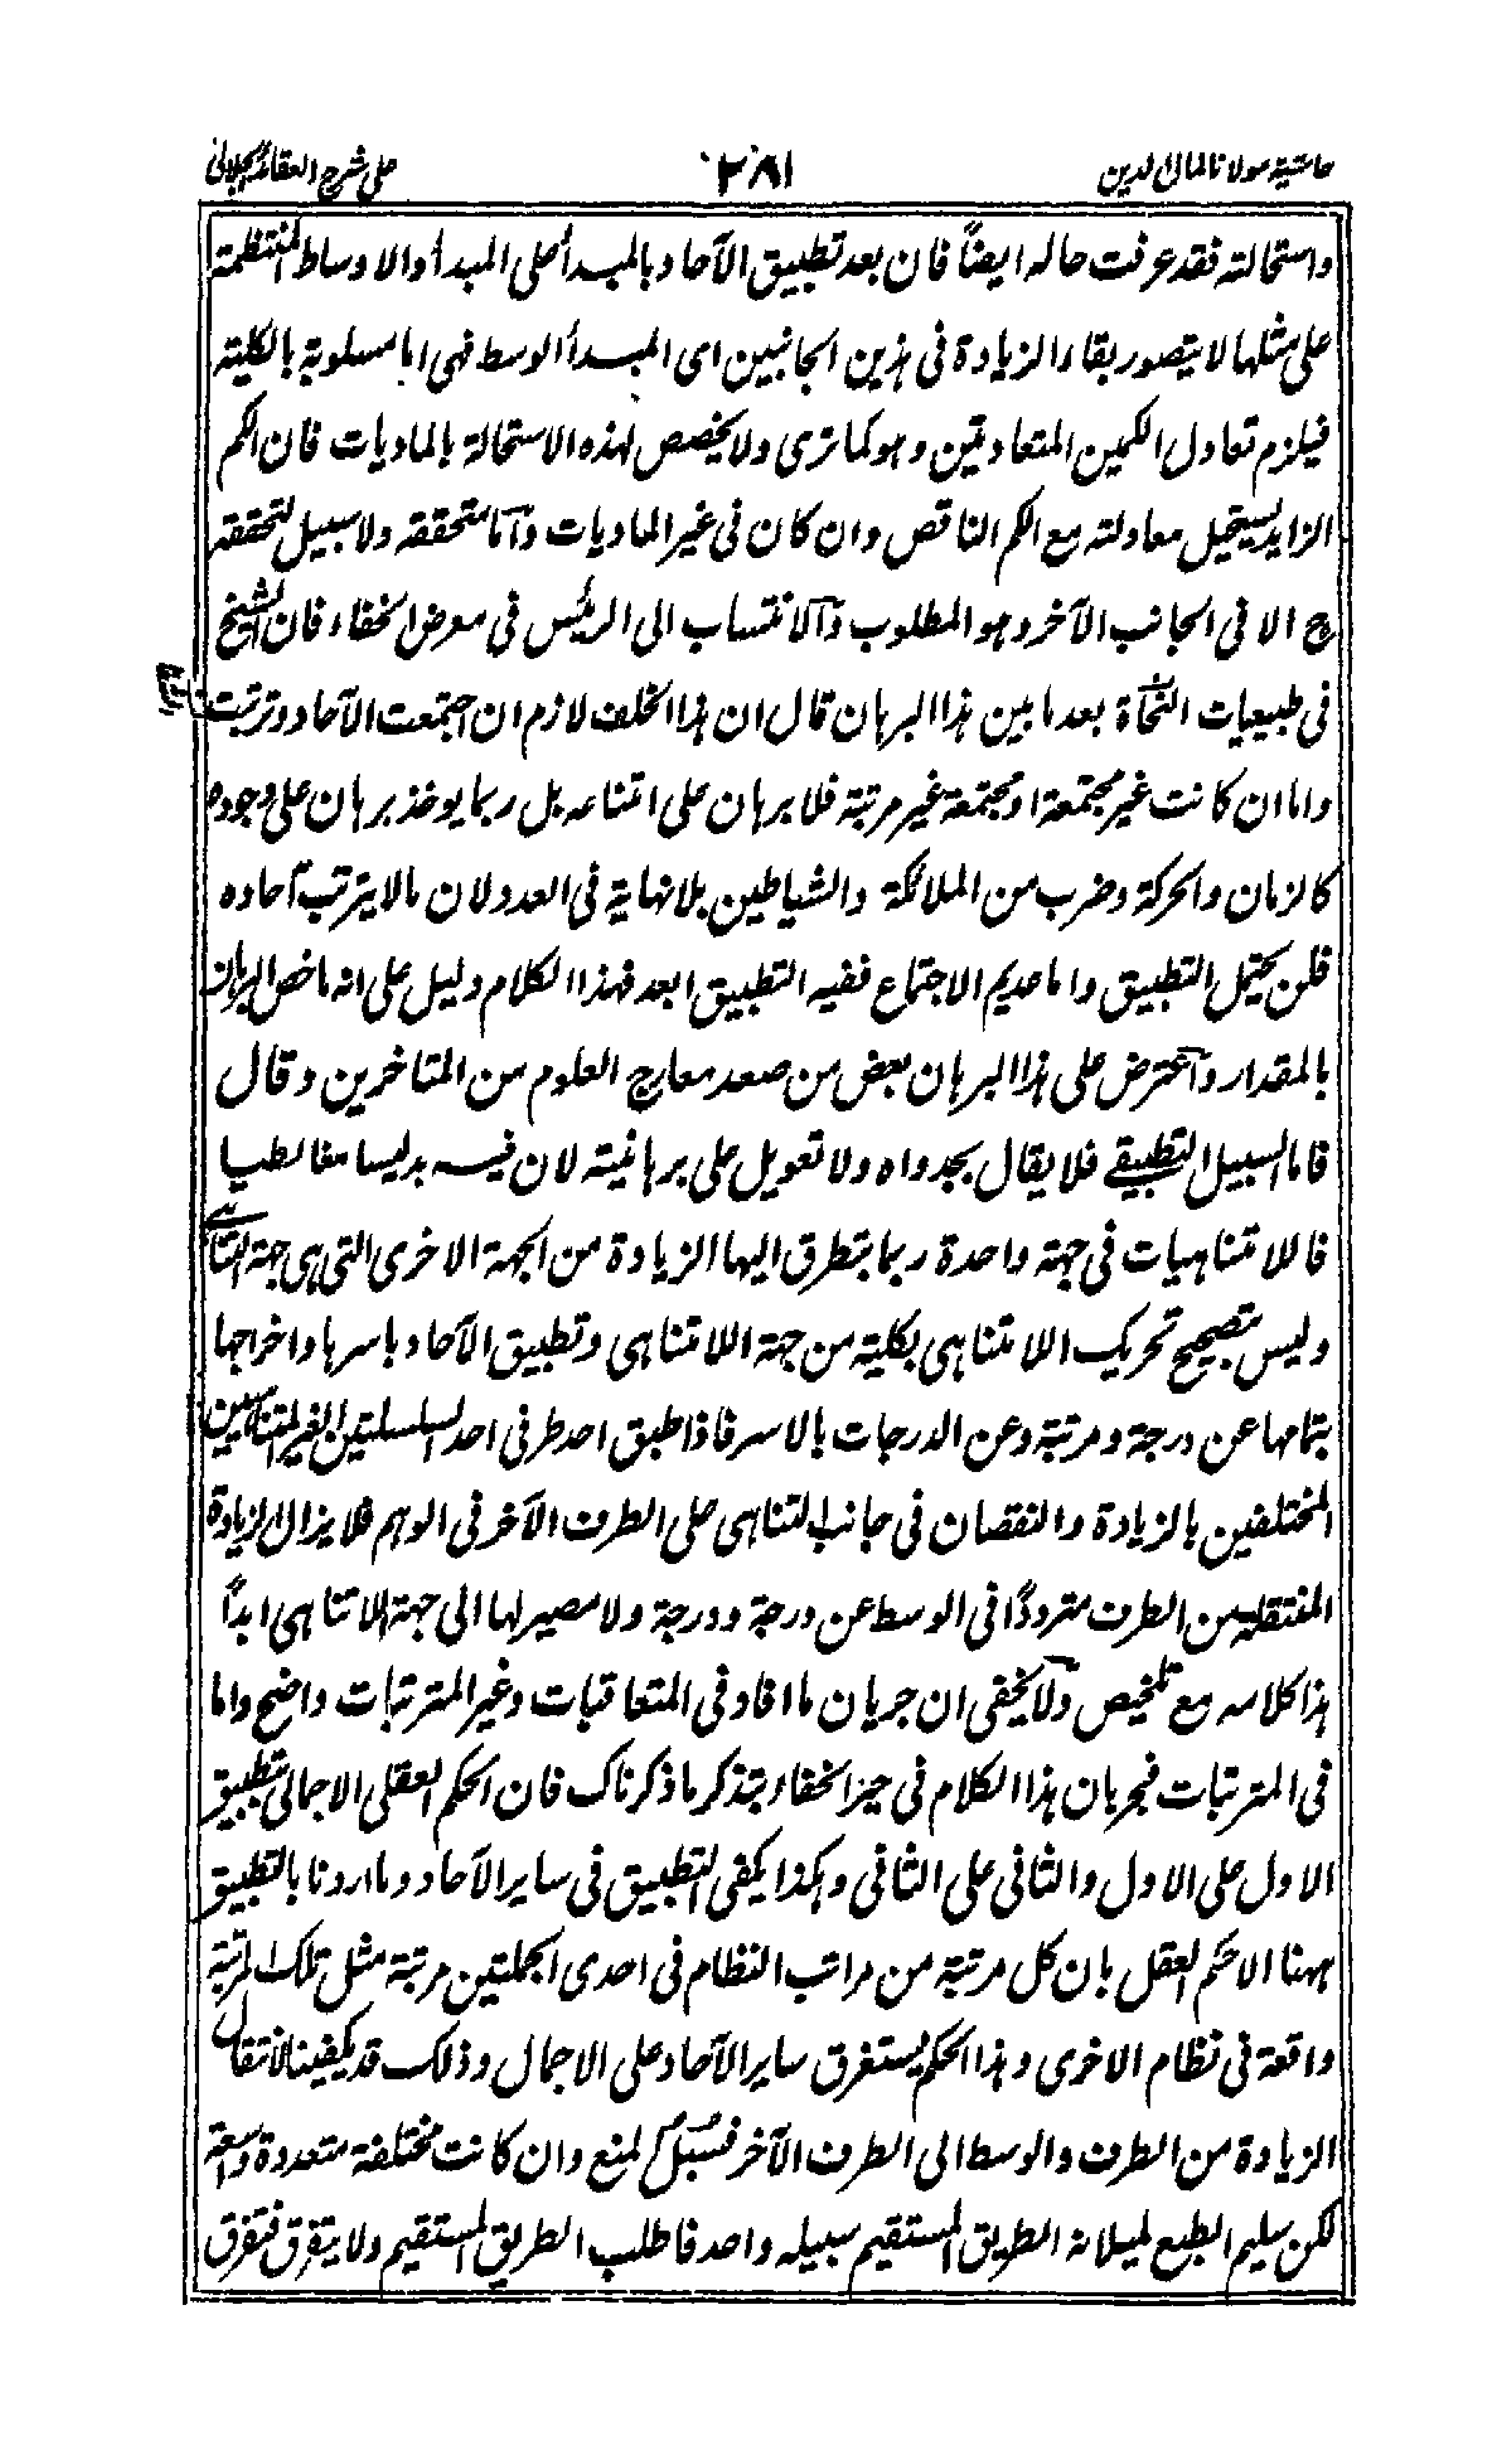 حاشیة مولانا کمال الدین ٢٨١ علی شرح العقائد الجلالی
واستحالته فقد عرفت حاله ایضاً فان بعد تطبیق الآحاد بالمبدأ علی المبدأ والاوساط المنتظمة
علی مثلها لا یتصور بقاء الزیادة فی هذین الجانبین ای المبدأ الوسط فهی اما مسلوبة بالکلیة
فیلزم تعادل الکمین المتعادتین وهو کما تری ولا یخصص لهذه الاستحالة بالمادیات فان الکم
الزاید یستحیل معادلته مع الکم الناقص وان کان فی غیر المادیات وآما متحققه ولا سبیل لتحققه
ح الا فی الجانب الآخر وهو المطلوب وآلانتساب الی الرئیس فی معرض الخفاء فان الشیخ
فی طبیعیات النجاة بعد ما بین هذا البرهان قال ان هذا الخلف لازم ان اجتمعت الآحاد وترتبت
واما ان کانت غیر مجتمعة او مجتمعة غیر مرتبة فلا برهان علی امتناعه بل ربما یوخذ برهان علی وجوده
کالزمان والحرکة وضرب من الملائکة والشیاطین بلا نهایة فی العدد ولان مالا یترتب آحاده
فلن یحتمل التطبیق واما عدیم الاجتماع ففیه التطبیق ابعد فهذا الکلام دلیل علی انه ما خص البرهان
بالمقدار وآعترض علی هذا البرهان بعض من صعد معارج العلوم من المتاخرین وقال
فاما السبیل التطبیقی فلا یقال بجدواه ولا تعویل علی برهانیته لان فیه تدلیسا مغالطیا
فاللا متناهیات فی جهة واحدة ربما یتطرق الیها الزیادة من الجهة الاخری التی هی جهة التناهی
ولیس یتصحح تحریک اللا متناهی بکلیته من جهة اللا تناهی وتطبیق الآحاد باسرها واخراجها
بتمامها عن درجة ومرتبة وعن الدرجات بالاسر فاذا طبق احد طرفی احد السلسلتین الغیر المتناهیین
المختلفین بالزیادة والنقصان فی جانب التناهی علی الطرف الآخر فی الوهم فلا یزال الزیادة
المنتقلة من الطرف مترددًا فی الوسط عن درجة ودرجة ولا مصیر لها الی جهة اللا تناهی ابداً
هذا کلامه مع تلخیص ولا یخفی ان جریان ما افاد فی المتعاقبات وغیر المترتبات واضح واما
فی المترتبات فجریان هذا الکلام فی حیز الخفاء بتذکر ما ذکرناک فان الحکم العقلی الاجمالی بتطبیق
الاول علی الاول والثانی علی الثانی وهکذا یکفی التطبیق فی سایر الآحاد وما اردنا بالتطبیق
ههنا الا حکم العقل بان کل مرتبة من مراتب النظام فی احدی الجملتین مرتبة مثل تلک المرتبة
واقعة فی نظام الاخری وهذا الحکم یستغرق سایر الآحاد علی الاجمال وذلک قد یکفینا لانتقال
الزیادة من الطرف والوسط الی الطرف الآخر فسبل المنع وان کانت مختلفة متعددة واسعة
لکن سلیم الطبع لمیلانه الطریق المستقیم سبیله واحد فاطلب الطریق المستقیم ولا یتفرق فتفرق